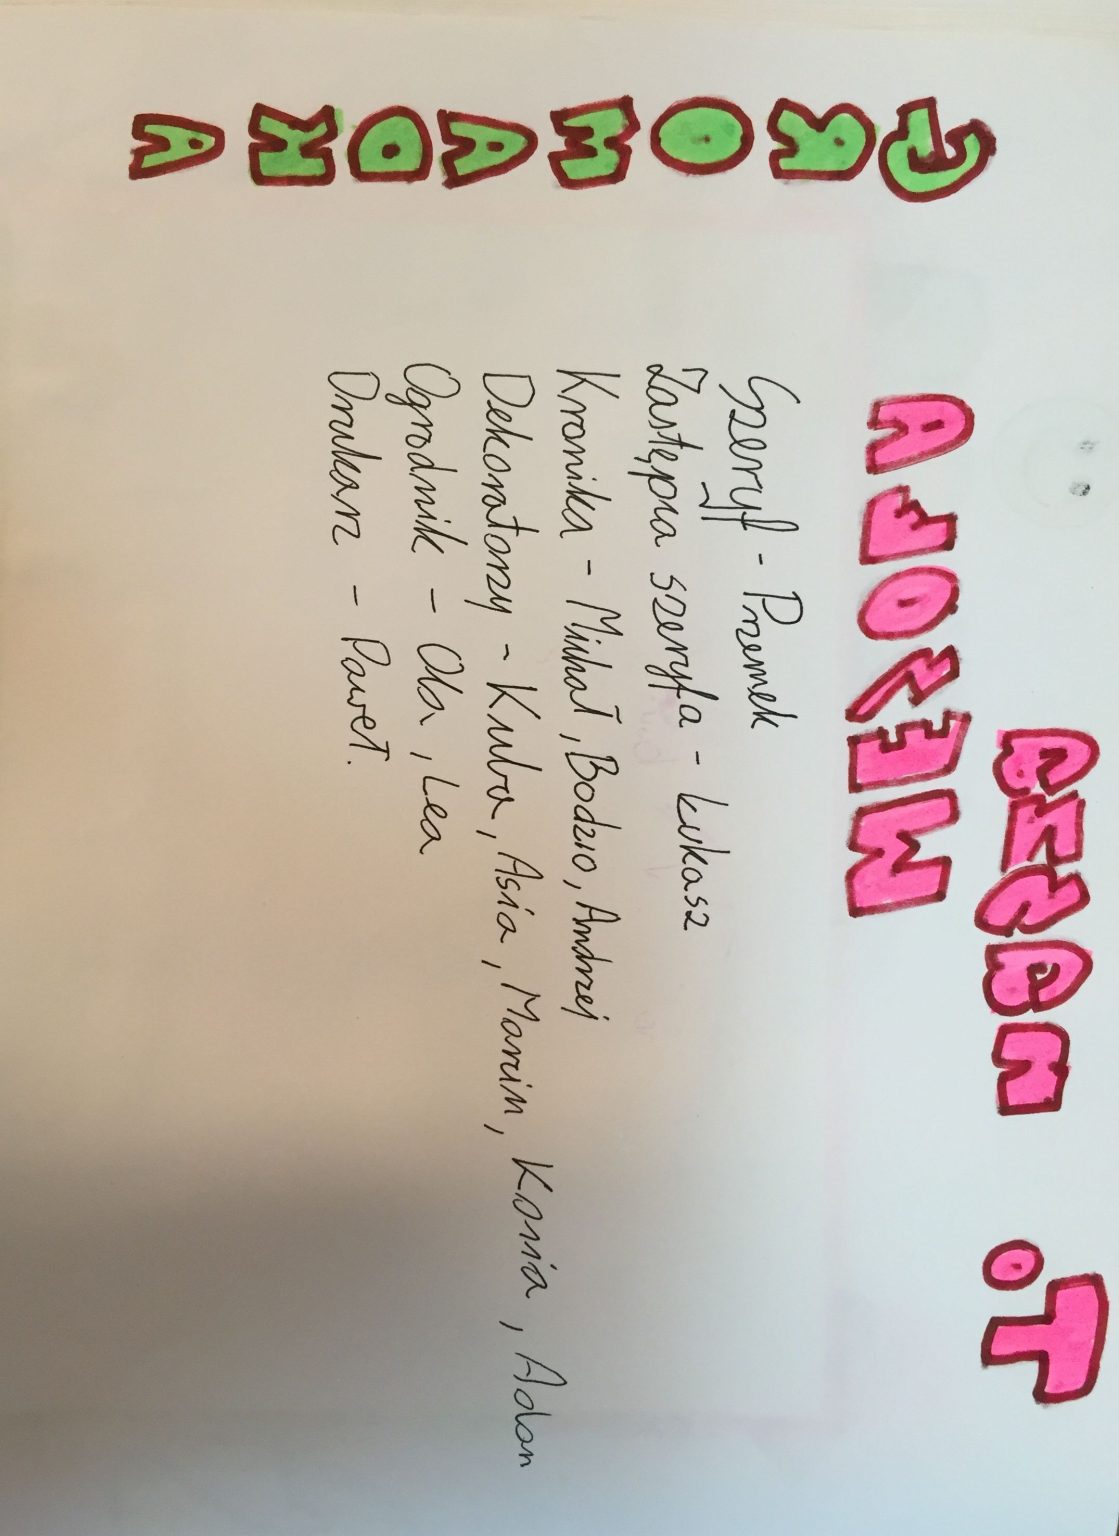 To NASZA
WESOŁA
GROMADKA
Szeryf - Przemek
Zastępca szeryfa - Łukasz
Kronika - Michał, Bodzio, Andrzej
Dekoratorzy - Kuba, Asia, Marcin, Kasia, Adam
Ogrodnik - Ola, Lea
Drukarz - Paweł.